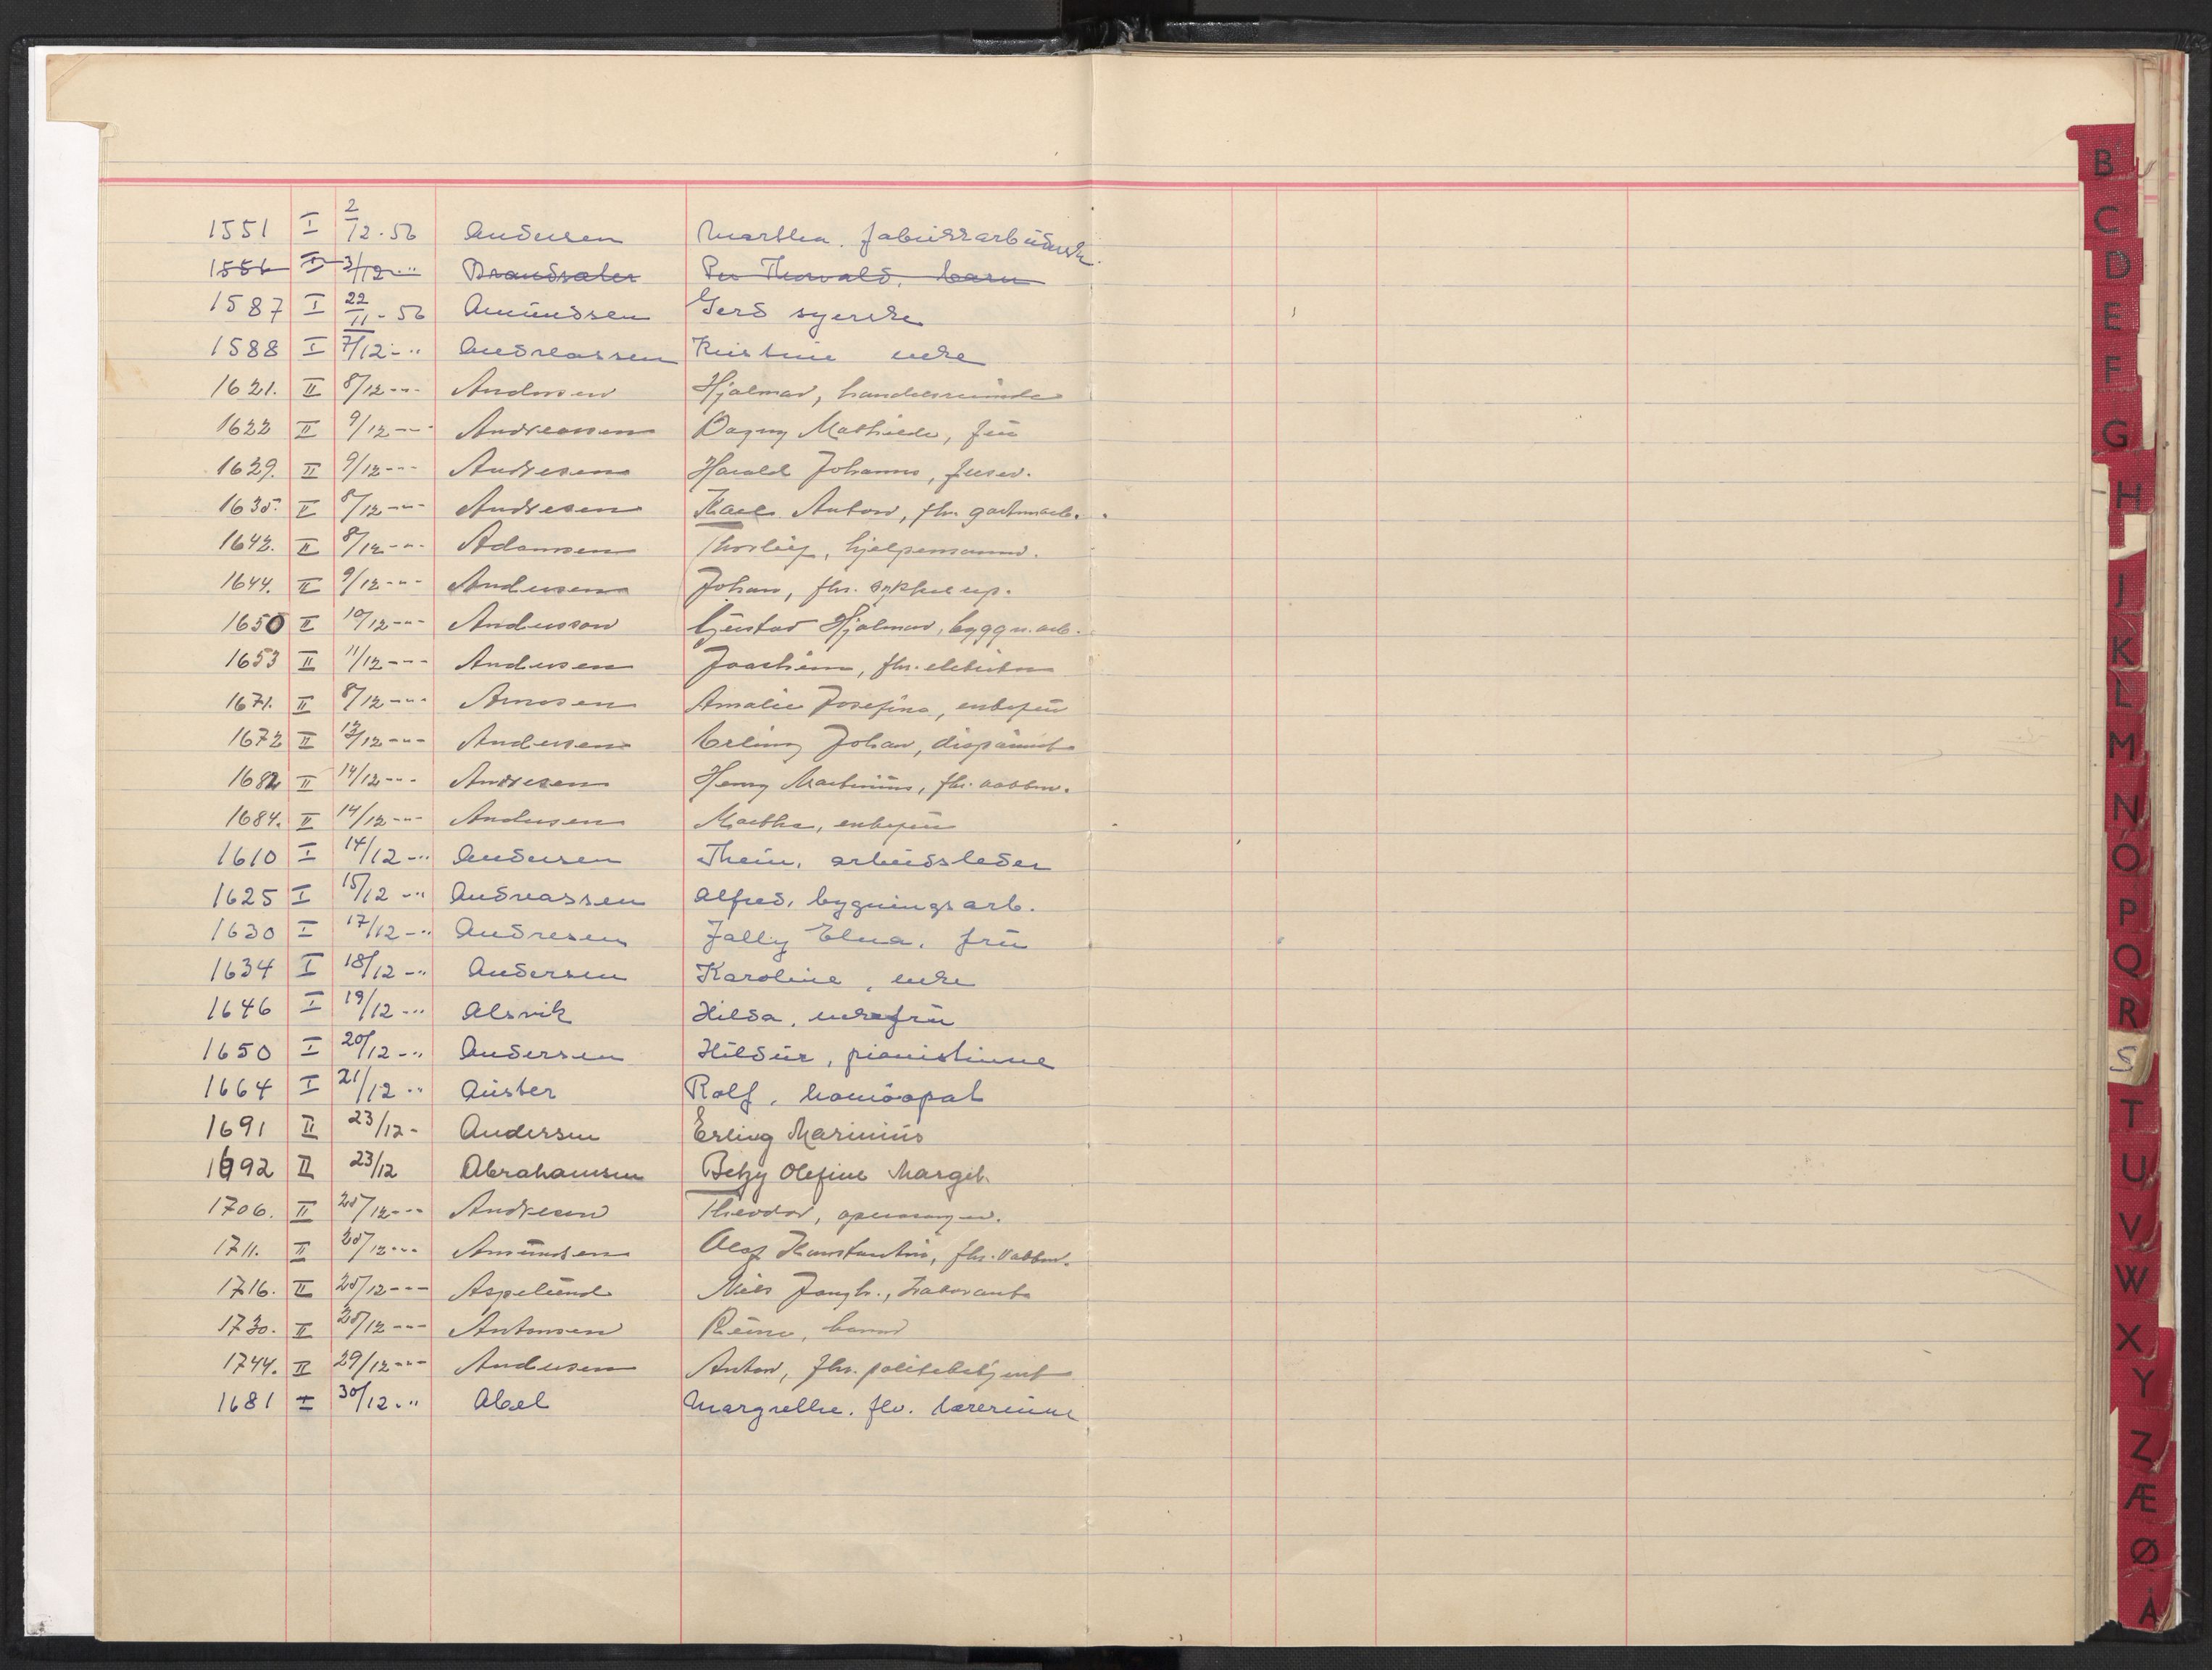 1551 I 2/12.56 Andersen Martha. fabrikkarbeiderske.
1556 I 3/12 -" Brandsæter Per Thorvald, barn
1587 I 22/11-56 Amundsen Gerd syerske
1588 I 7/12-" Andreassen Kristine enke
1621. II 8/12--- Andersen Hjalmar, handelsreisende
1622 II 9/12--- Andreassen Dagny Mathilde, frü
1629. II 9/12--- Andresen Harald Johannes,
1635. II 8/12--- Andresen Karl Anton, fhv.
1642. II 8/12--- Adamsen Thorleif, hjelpemann.
1644. II 9/12--- Andersen Johan, fhv.
1650 II 10/12--- Andersson Güstav Hjalmar, byggn.arb.
1653 II 11/12--- Andersen Joachim, fhv.
1671. II 8/12--- Arnesen Amalie Josefine, enkefrü
1672 II 13/12--- Andersen Erling Johan, disponent
1682 II II 14/12--- Andresen Henny Martinius, fhv.
1684. II 14/12--- Andersen Martha, enkefrü
1610 I 14/12-" Andersen Thein, arbeidsleder
1625 I 15/12-" Andreassen Alfred, bygningsarb.
1630 I 17/12-" Andresen Jally Elna, frü
1634 I 18/12-" Andersen Karoline, enke
1646 I 19/12-" Alsvik Hilda, enkefrü
1650 I 20/12-" Andersen Hildür, pianistinne
1664 I 21/12-" Aüster Rolf, homöopat
1691 II 23/12- Andersen Erling Mariniüs
1692 II 23/12 Abrahamsen Betzy Olefine Margit.
1706. II 25/12--- Andresen Theodor,
1711. II 25/12--- Amündsen Olaf Konstantin, fhv.
1716. II 25/12--- Aspelünd Niels Jongh.,
1730. II 28/12--- Antonsen Rüne, barn
1744. II 29/12--- Andersen Anton, fhv. politibetjent
1681 I 30/12-" Abel Margrethe. fhv. lærerinne
B
C
D
E
F
G
H
J
K
L
M
N
O
P
Q
R
S
T
U
V
W
X
Y
Z
Æ
Ø
Å